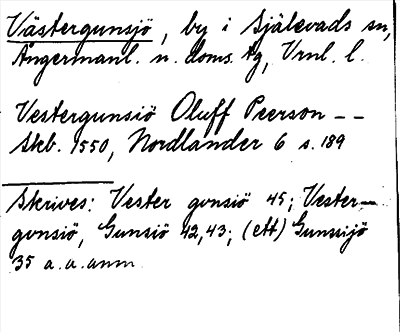 Västergunsjö, by i Själevads sn,
Ångermanl. n. doms. tg, Vrnl. l.
Vestergunsiö Oluff Peerson --
Skb. 1550, Nordlander 6 s. 189
Skrives: Vester gvnsiö 45; Vester-
gvnsiö, Gunsiö 42,43; (ett) Gunssijö
35 a.a.anm